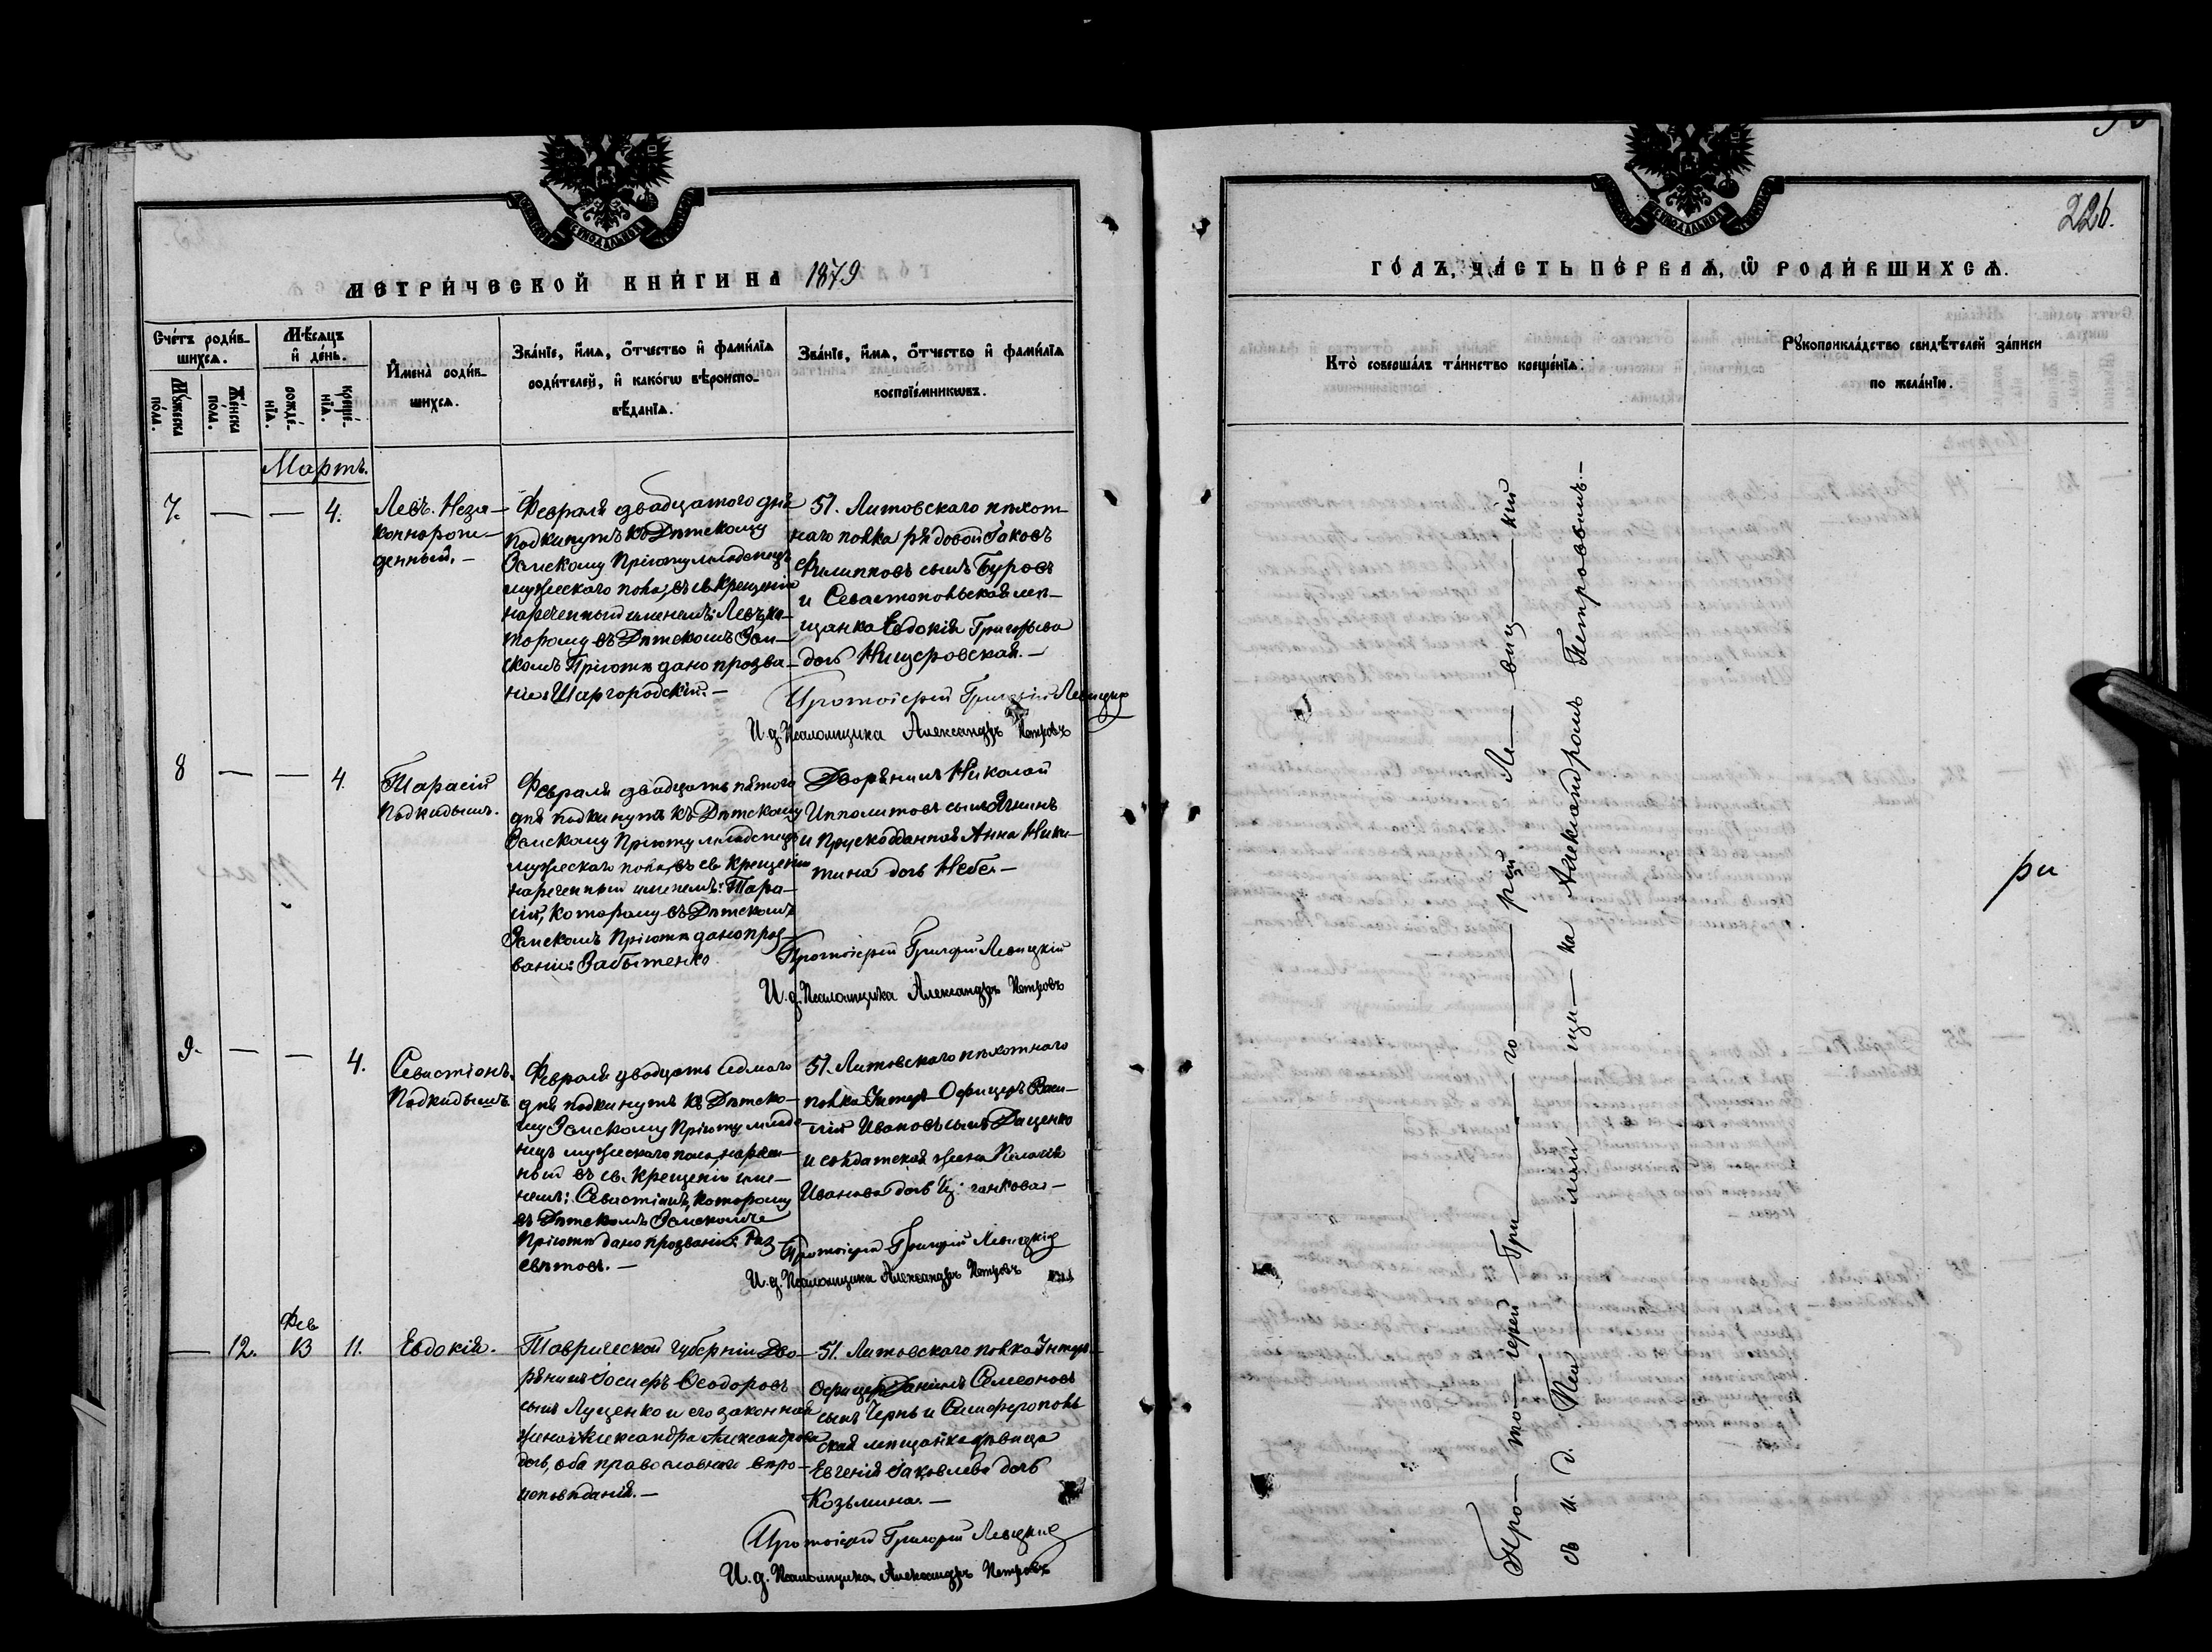 МЕТРИ́ЧЕСКОЙ КНИ́ГИ НА 1879
Сче́тъ роди́в-
шихсѧ.
Мꙋ́жеска
по́ла.
Же́нска
пола.
Мѣ́сѧцъ
и҆ де́нь.
рожде́-
нїѧ.
креще́-
нїѧ.
И҆мена̀ роди́в-
шихсѧ.
Зва́нїе, и҆́мѧ, ѻ҆́тчество и҆ фами́лїѧ
роди́телей, и҆ како́гѡ вѣроиспо-
вѣ́данїѧ.
Зва́нїе, и҆́мѧ, ѻ҆́тчество и҆ фами́лїѧ
воспрїе́мникѡвъ.
Мартъ.
7.
—
—
4.
Левъ. Неза-
коннорож-
денный.-
Февраля двадцатого дня
подкинутъ къ Дѣтскому
Земскому Пріюту младенецъ
мужескаго пола, въ св. крещеніи
нареченный именемъ: Левъ, ко-
торому въ Дѣтскомъ Зем-
скомъ Пріютѣ дано прозва-
ніе: Шаргородскій.-
51. Литовскаго пѣхот-
наго полка рядовой Іаковъ
Филипповъ сынъ Буровъ
и Севастопольская мѣ-
щанка Евдокія Григорьева
дочь Нищеровская.-
Протоіерей Григорій Левицкій
И. д. Псаломщика Александръ Петровъ
8
—
—
4.
Тарасій
Подкидышъ.
Февраля двадцать пятого
дня подкинутъ къ Дѣтскому
Земскому Пріюту младенецъ
мужескаго пола, въ св. крещеніи
нареченный именемъ: Тара-
сій, которому въ Дѣтскомъ
Земскомъ Пріютѣ дано проз-
ваніе: Забытенко
Дворянинъ Николай
Ипполитовъ сынъ Янинъ
и Прускоподданная Анна Ники-
тина дочь Небе.-
Протоіерей Григорій Левицкій
И. д. Псаломщика Александръ Петровъ
9.
—
—
4.
Севастіанъ.
Подкидышъ.
Февраля двадцать седмого
дня подкинутъ къ Дѣтско-
му Земскому Пріюту младе-
нецъ мужескаго пола, наречен-
ный въ св. крещеніи име-
немъ: Севастіанъ, которому
въ Дѣтскомъ Земскомъ
Пріютѣ дано прозваніе: Раз-
свѣтовъ.-
51. Литовскаго пѣхотнаго
полка Унтеръ-Офицеръ Васи-
лій Ивановъ сынъ Даценко
и солдатская жена Пелагія
Иванова дочь
Протоіерей Григорій Левицкій
И. д. Псаломщика Александръ Петровъ
—
12.
Фев
13
11.
Евдокія.
Таврической губерніи дво-
рянинъ Іосифъ Ѳеодоровъ
сынъ Луценко и его законная
жена Александра Александрова
дочь, оба православнаго вѣро-
исповѣданія.-
51. Литовскаго полка Унтеръ-
офицеръ Даніилъ Семеоновъ
сынъ Чернь и Симферополь-
ская мѣщанка дѣвица
Евгенія Іаковлева дочь
Козьмина.-
Протоіерей Григорій Левицкій
И. д. Псаломщика Александръ Петровъ
226.
ГО́ДЪ, ЧА́СТЬ ПЕ́РВАѦ, Ѡ҆ РОДИ́ВШИХСѦ.
Кто̀ соверша́лъ та́инство креще́нїѧ.
Рꙋкоприкла́дство свидѣ́телей за́писи
по жела́нїю.
Про— то—іерей Гри——го——рій Ле——виц——кій
съ и. д. Пса——лом——щи—ка Александромъ Петровымъ-
ри